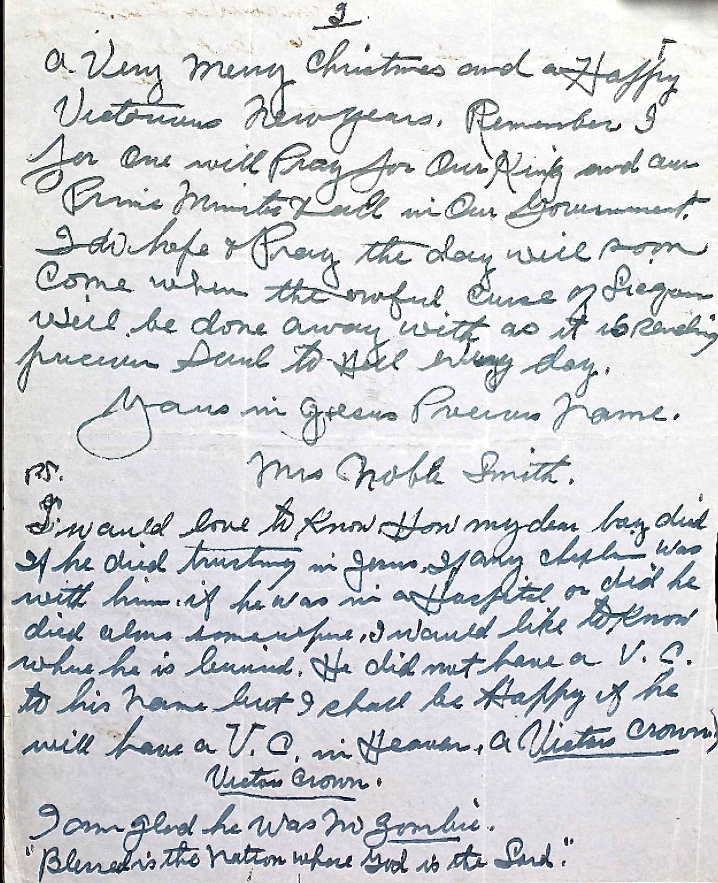 3
a Very merry Christmas and a Happy
Victorious New years. Remember I
for one will Pray for Our King and our
Prime Minister & all in Our Government.
I do hope & Pray the day will soon
Come when the awful Curse of
will be done away with as it is sending
precious Soul to Hell every day.
Yours in Jesus Precious Name.
Mrs Noble Smith.
P.S.
I would love to Know How my dear boy died
If he died trusting in Jesus, If any was
with him. if he was in a Hospital or did he
died alone somewhere, I would like to Know
where he is buried. He did not have a V. C.
to his Name but I shall be Happy if he
will have a V. C. in Heaven. a Victors Crown)
Victors Crown.
I am glad he was No Zombie.
"Blessed is the Nation whose God is the Lord."